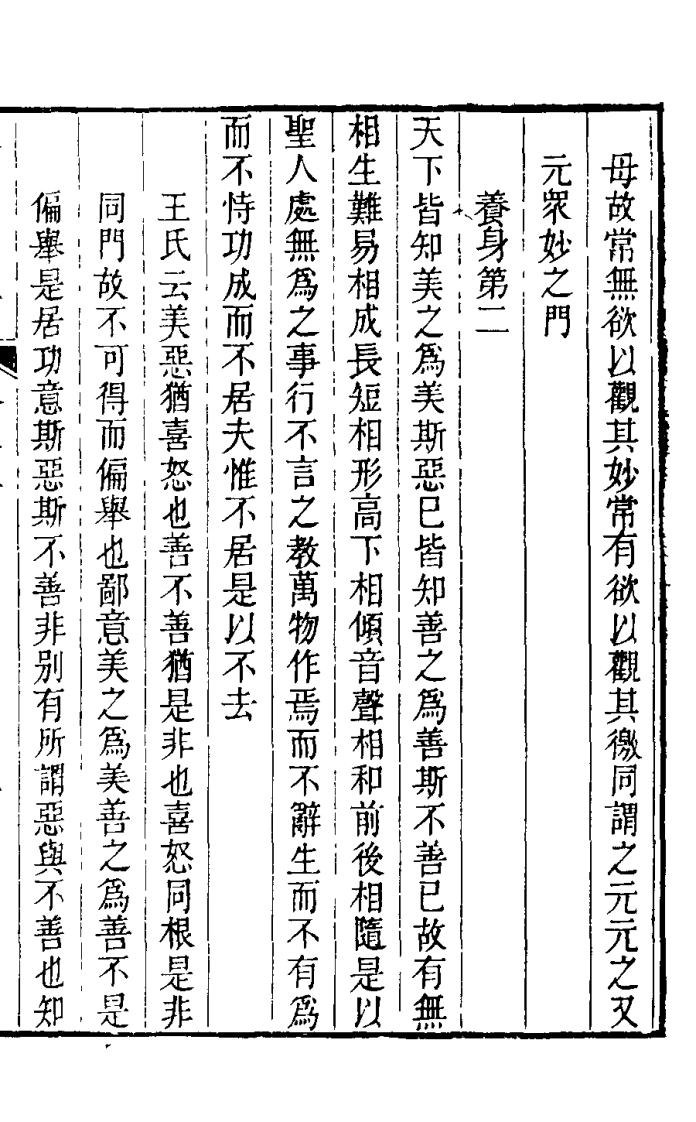 母故常無欲以觀其妙常有欲以觀其徼同謂之元元之又
元眾妙之門
養身第二
天下皆知美之爲美斯惡已皆知善之爲善斯不善已故有無
相生難易相成長短相形高下相傾音聲相和前後相隨是以
聖人處無爲之事行不言之教萬物作焉而不辭生而不有爲
而不恃功成而不居夫惟不居是以不去
王氏云美惡猶喜怒也善不善猶是非也喜怒同根是非
同門故不可得而偏舉也鄙意美之爲美善之爲善不是
偏舉是居功意斯惡斯不善非別有所謂惡與不善也知